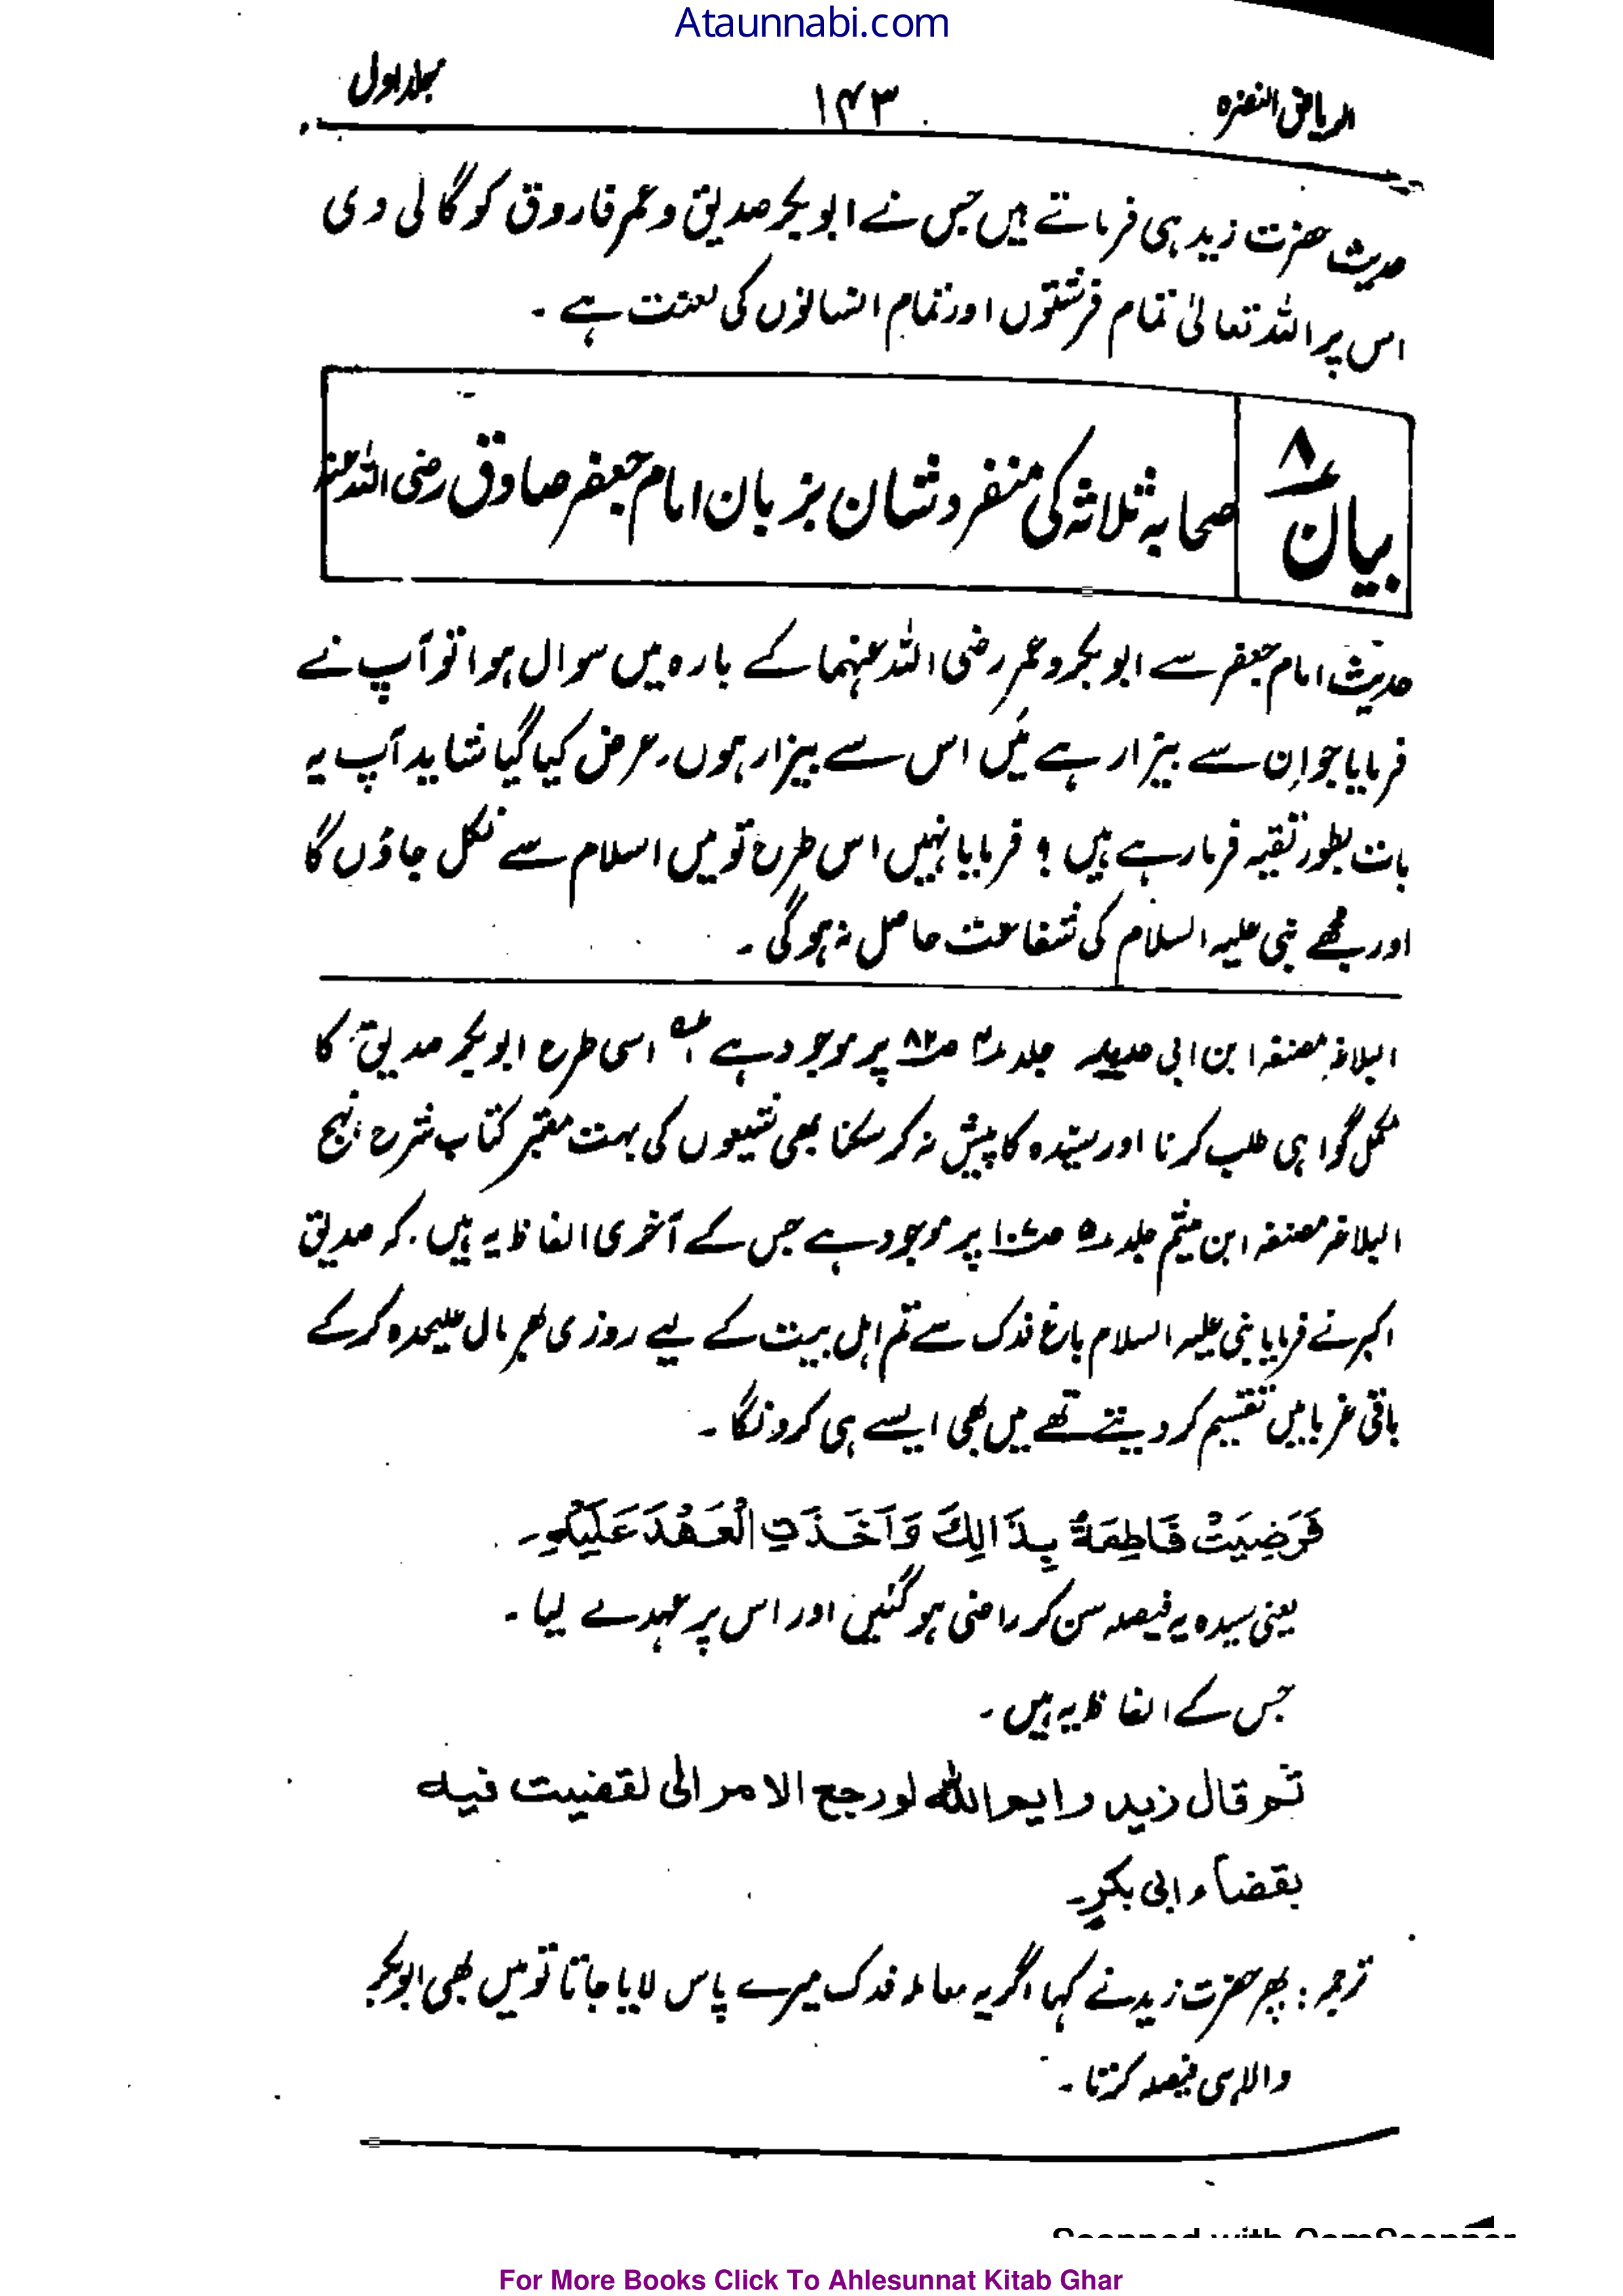 Ataunnabi.com
الریاض النضرہ ۱۴۳ جلد اول
حدیث حضرت زید ہی فرماتے ہیں جس نے ابوبکر صدیق و عمر فاروق کو گالی دی
اس پر اللہ تعالیٰ تمام فرشتوں اور تمام انسانوں کی لعنت ہے ۔
بیان ۸ صحابہ ثلاثہ کی منفرد شان بزبان امام جعفر صادق رضی اللہ عنہ
حدیث امام جعفر سے ابوبکر و عمر رضی اللہ عنہما کے بارہ میں سوال ہوا تو آپ نے
فرمایا جو اِن سے بیزار ہے مَیں اس سے بیزار ہوں۔ عرض کیا گیا شاید آپ یہ
بات بطور تقیہ فرما رہے ہیں ؟ فرمایا نہیں اس طرح تو میں اسلام سے نکل جاؤں گا
اور مجھے نبی علیہ السلام کی شفاعت حاصل نہ ہوگی ۔
البلاغہ مصنفہ ابن ابی جلد ۴ ص ۸۲ پر موجود ہے اسی طرح ابوبکر صدیق کا
مکمل گواہی طلب کرنا اور سیدہ کا پیش نہ کر سکنا بھی شیعوں کی بہت معتبر کتاب شرح نہج
البلاغہ مصنفہ ابن میثم جلد ۵ ص ۱۰۷ پر موجود ہے جس کے آخری الفاظ یہ ہیں۔ کہ صدیق
اکبر نے فرمایا نبی علیہ السلام باغ فدک سے تم اہل بیت کے لیے روزی بھر مال علیحدہ کر کے
باقی غربا میں تقسیم کر دیتے تھے میں بھی ایسے ہی کرونگا ۔
فَرَضِیَتْ فَاطِمَۃُ بِذَالِكَ وَاَخَذَتِ الْعَھْدَ عَلَیْكَ۔
یعنی سیدہ یہ فیصلہ سن کر راضی ہو گئیں اور اس پر عہد لے لیا ۔
جس کے الفاظ یہ ہیں ۔
ثم قال زید وایم اللہ لو رجع الامر الی لقضیت فیہ
بقضاء ابی بکرٍ۔
ترجمہ : پھر حضرت زید نے کہا اگر یہ معاملہ فدک میرے پاس لایا جاتا تو میں بھی ابوبکر
والا ہی فیصلہ کرتا ۔
Scanned with CamScanner
For More Books Click To Ahlesunnat Kitab Ghar